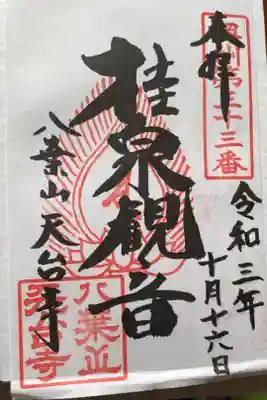 奥州第三十三番
奉拝
令和三年
十月十六日
桂泉観音
八葉山天台寺
八葉山
天台寺